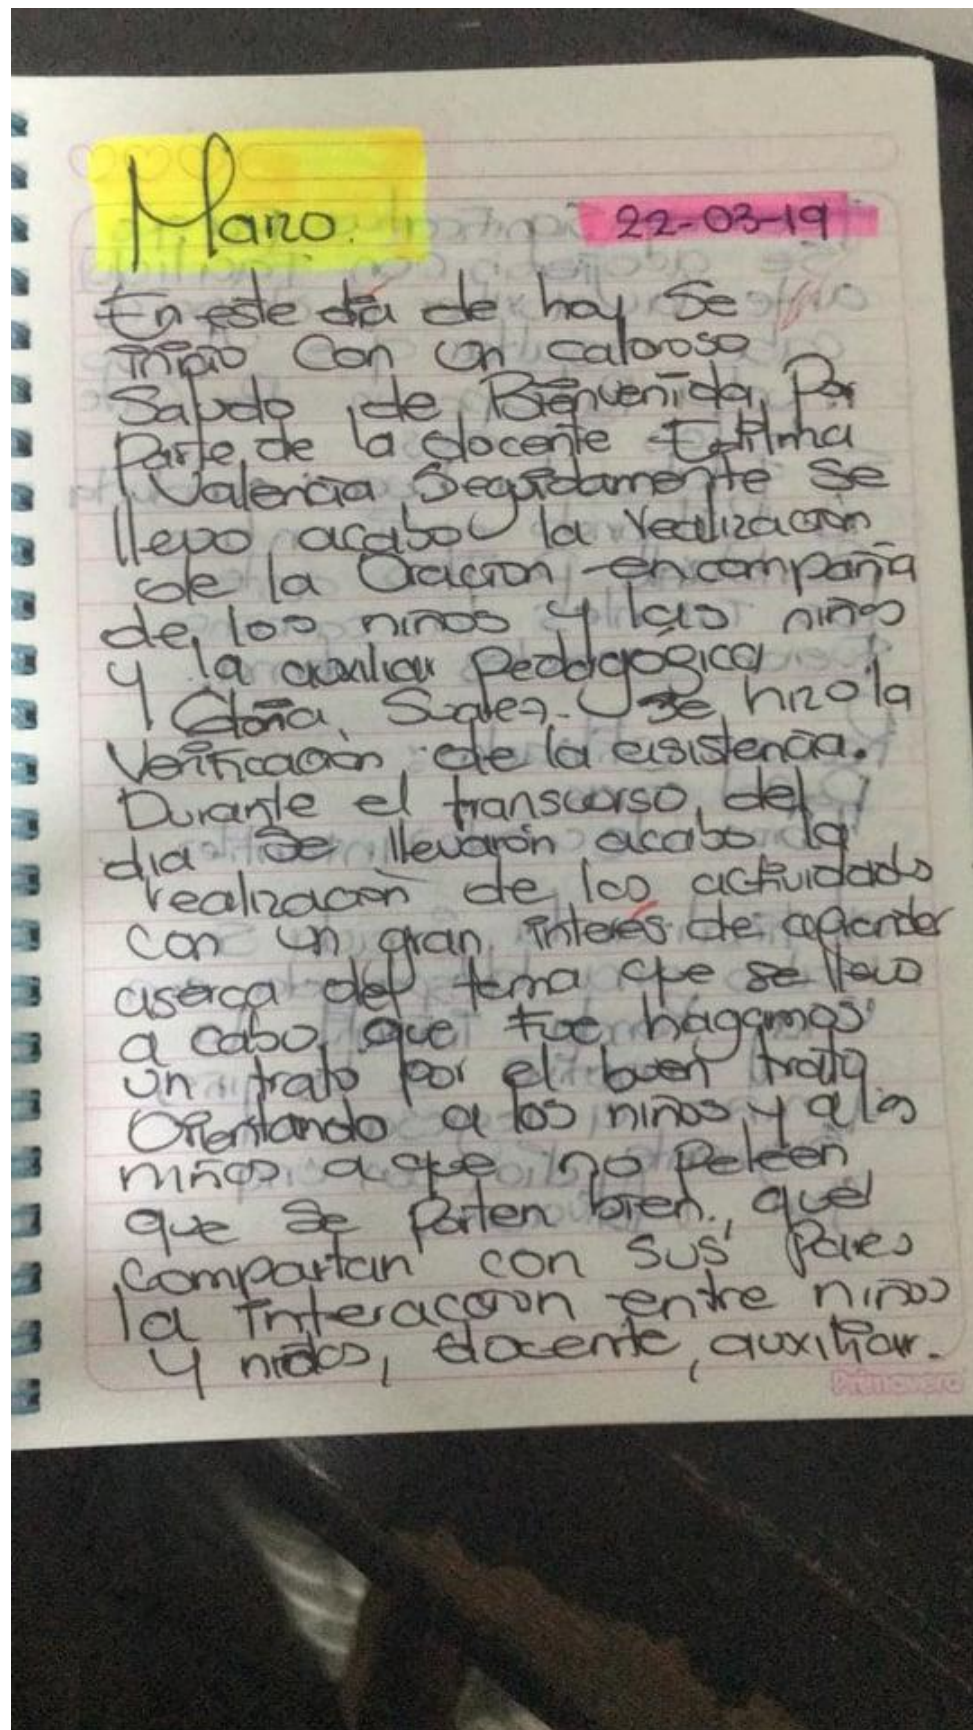 Marzo.
22-03-19
En este día de hoy Se
inicio Con un caloroso
Saludo de Bienvenida Por
Parte de la docente
Valencia Seguidamente Se
llevo acabo la realización
de la Oración en compañia
de los niños y las niñas
y la auxiliar pedagógica
Gloria Suarez. Se hizo la
Verificación de la asistencia.
Durante el transcurso del
dia Se llevarón acabo la
realización de las actividades
con un gran interés de aprender
aserca del tema que se llevo
a cabo que fue hagamos
un trato por el buen trato
Orientando a los niños y a las
niñas a que no peleen
que se porten bien, que
compartan con sus pares
la interacción entre niños
y niñas, docente, auxiliar.
Primavera